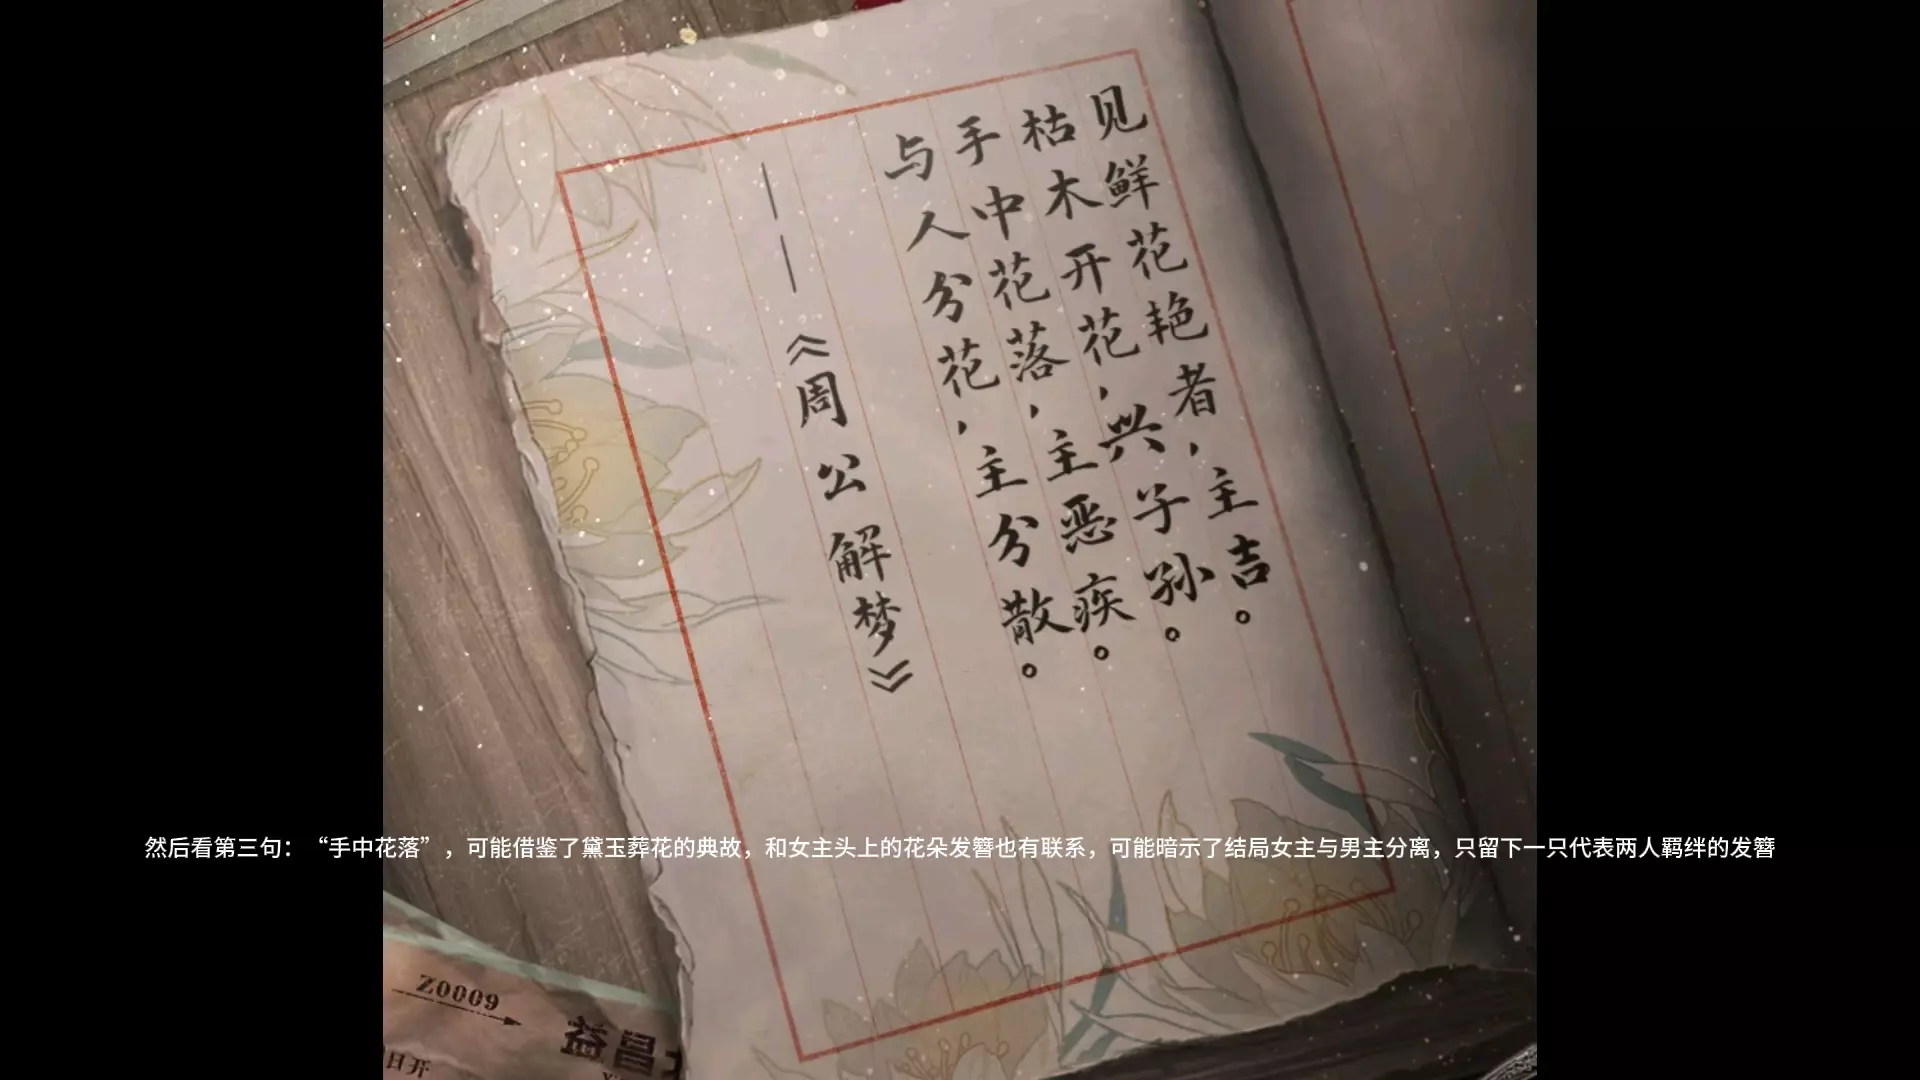 见鲜花艳者，主吉。
枯木开花，兴子孙。
手中花落，主恶疾。
与人分花，主分散。
——《周公解梦》
然后看第三句：“手中花落”，可能借鉴了黛玉葬花的典故，和女主头上的花朵发簪也有联系，可能暗示了结局女主与男主分离，只留下一只代表两人羁绊的发簪
Z0009
益昌
日开